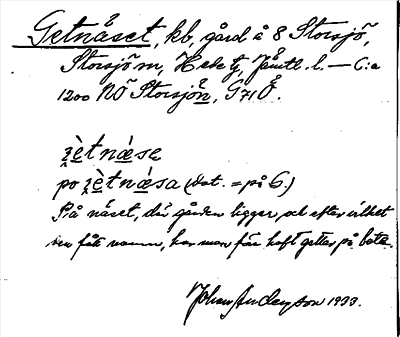 Getnåset, kb, gård å 8 Storsjö,
Storsjö sn, Hede tg, Jämtl. l. — C:a
1200 NÖ Storsjön, G71Ö.
ʒètnǽse
po ʒètnǽsa (dat. = på G.)
På näset, där gården ligger, och efter vilket
den fått namn, har man förr haft getter på bete.
Johan Anderson 1933.